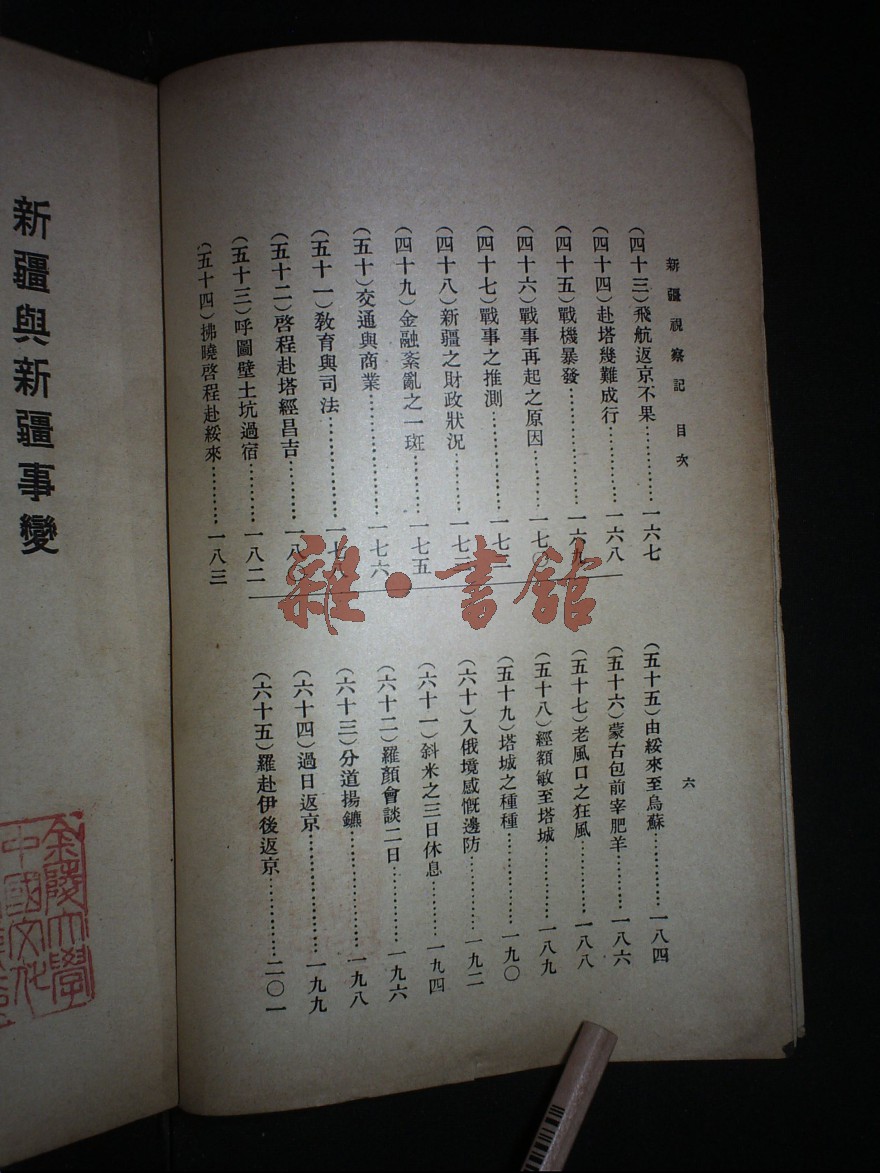 新疆視察記 目次
(四十三)飛航返京不果…………一六七
(四十四)赴塔幾難成行…………一六八
(四十五)戰機暴發…………一六九
(四十六)戰事再起之原因…………一七〇
(四十七)戰事之推測…………一七二
(四十八)新疆之財政狀況…………一七三
(四十九)金融紊亂之一斑…………一七五
(五十)交通與商業…………一七六
(五十一)教育與司法…………一七八
(五十二)啓程赴塔經昌吉…………一八〇
(五十三)呼圖壁土坑過宿…………一八二
(五十四)拂曉啓程赴綏來…………一八三
六
(五十五)由綏來至烏蘇…………一八四
(五十六)蒙古包前宰肥羊…………一八六
(五十七)老風口之狂風…………一八八
(五十八)經額敏至塔城…………一八九
(五十九)塔城之種種…………一九〇
(六十)入俄境感慨邊防…………一九二
(六十一)斜米之三日休息…………一九四
(六十二)羅顏會談二日…………一九六
(六十三)分道揚鑣…………一九八
(六十四)過日返京…………一九九
(六十五)羅赴伊後返京…………二〇一
新疆與新疆事變
金陵大學
中國文化
雜·書館